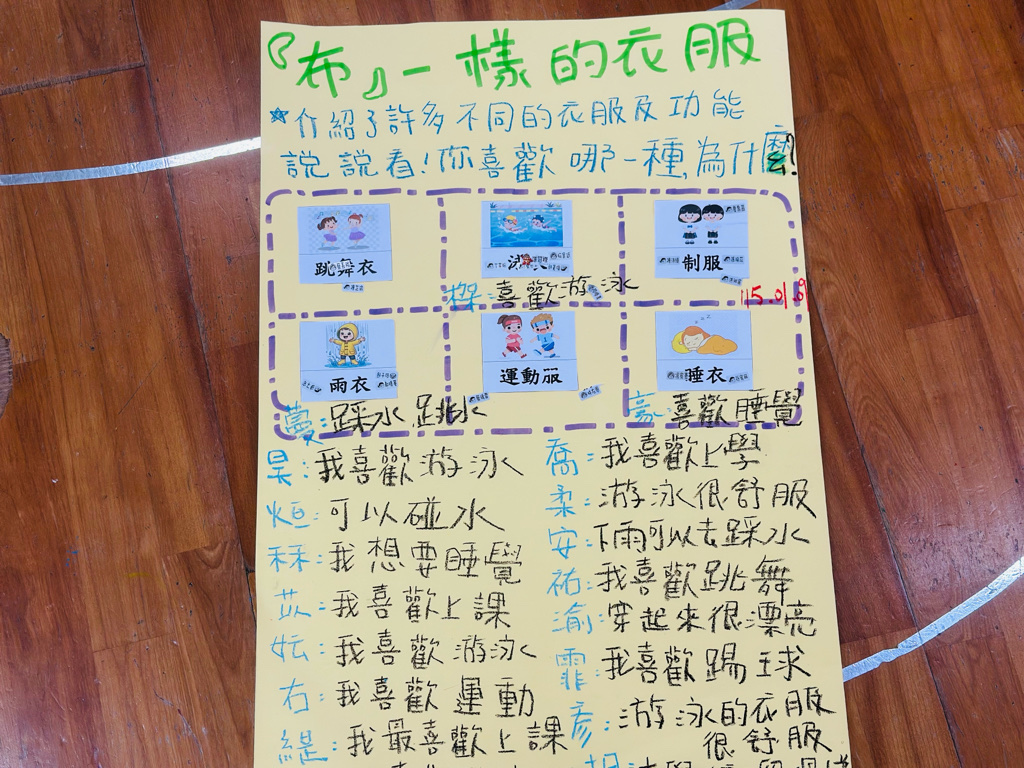 『布』一樣的衣服
★介紹了許多不同的衣服及功能
說說看!你喜歡哪一種,為什麼?
跳舞衣
泳衣
制服
樑:喜歡游泳
115.01.09
雨衣
運動服
睡衣
蔓:踩水 跳水
豪:喜歡睡覺
昊:我喜歡游泳
烜:可以碰水
秝:我想要睡覺
苡:我喜歡上課
妘:我喜歡游泳
右:我喜歡運動
緹:我最喜歡上課
喬:我喜歡上學
柔:游泳很舒服
安:下雨可以去踩水
祐:我喜歡跳舞
渝:穿起來很漂亮
霏:我喜歡踢球
彥:游泳的衣服
很舒服